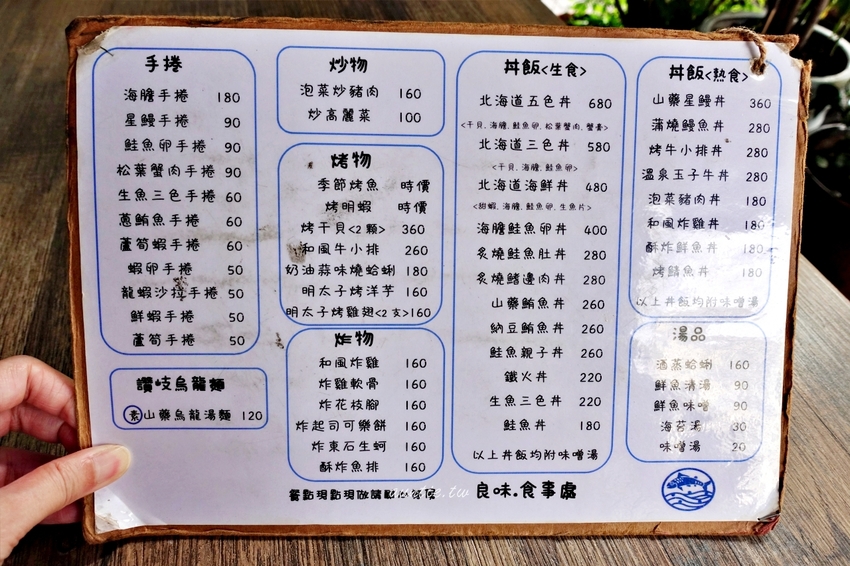 手捲
海膽手捲 180
星鰻手捲 90
鮭魚卵手捲 90
松葉蟹肉手捲 90
生魚三色手捲 60
蔥鮪魚手捲 60
蘆筍蝦手捲 60
蝦卵手捲 50
龍蝦沙拉手捲 50
鮮蝦手捲 50
蘆筍手捲 50
讚岐烏龍麵
素 山藥烏龍湯麵 120
炒物
泡菜炒豬肉 160
炒高麗菜 100
烤物
季節烤魚 時價
烤明蝦 時價
烤干貝<2顆> 360
和風牛小排 260
奶油蒜味燒蛤蜊 180
明太子烤洋芋 160
明太子烤雞翅<2支>160
炸物
和風炸雞 160
炸雞軟骨 160
炸花枝腳 160
炸起司可樂餅 160
炸東石生蚵 160
酥炸魚排 160
丼飯<生食>
北海道五色丼 680
<干貝.海膽.鮭魚卵.松葉蟹肉.蟹膏>
北海道三色丼 580
<干貝.海膽.鮭魚卵>
北海道海鮮丼 480
<甜蝦.海膽.鮭魚卵.生魚片>
海膽鮭魚卵丼 400
炙燒鮭魚肚丼 280
炙燒鰭邊肉丼 280
山藥鮪魚丼 260
納豆鮪魚丼 260
鮭魚親子丼 260
鐵火丼 220
生魚三色丼 220
鮭魚丼 180
以上丼飯均附味噌湯
丼飯<熱食>
山藥星鰻丼 360
蒲燒鰻魚丼 280
烤牛小排丼 280
溫泉玉子牛丼 280
泡菜豬肉丼 180
和風炸雞丼 180
酥炸鮮魚丼 180
烤鯖魚丼 180
以上丼飯均附味噌湯
湯品
酒蒸蛤蜊 160
鮮魚清湯 90
鮮魚味噌 90
海苔湯 30
味噌湯 20
餐點現點現做請耐心等候
良味.食事處